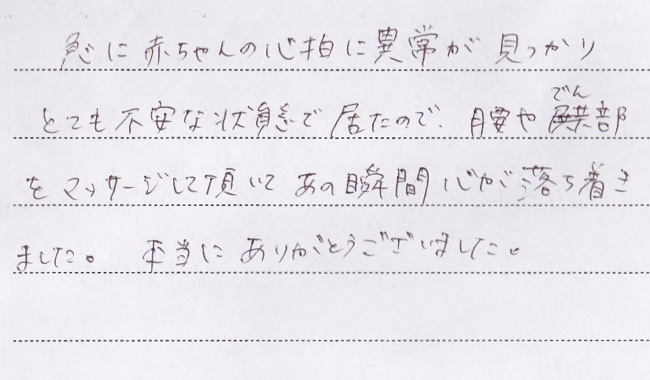 急に赤ちゃんの心拍に異常が見つかり
とても不安な状態で居たので、腰や臀部
でん
をマッサージして頂いてあの瞬間心が落ち着き
ました。本当にありがとうございました。